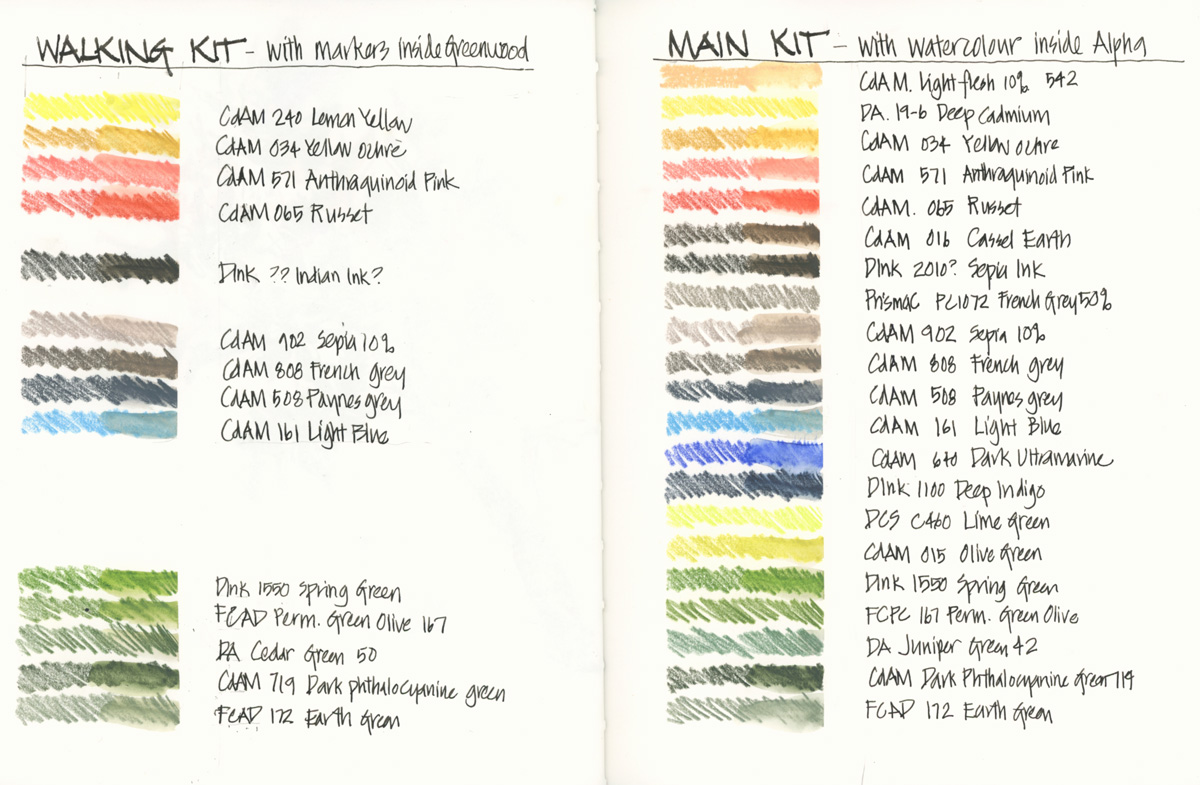 WALKING KIT - with markers inside Greenwood
CdAM 240 Lemon Yellow
CdAM 034 Yellow ochre
CdAM 571 Anthraquinoid Pink
CdAM 065 Russet
DInk ?? Indian Ink?
CdAM 902 Sepia 10%
CdAM 808 French grey
CdAM 508 Paynes grey
CdAM 161 Light Blue
DInk 1550 Spring Green
FCAD Perm. Green Olive 167
DA Cedar Green 50
CdAM 719 Dark phthalocyanine green
FCAD 172 Earth Green
MAIN KIT - with watercolour inside Alpha
CdAM. Light flesh 10% 542
DA. 19-6 Deep Cadmium
CdAM 034 Yellow ochre
CdAM 571 Anthraquinoid Pink
CdAM. 065 Russet
CdAM 016 Cassel Earth
DInk 2010? Sepia Ink
PrismaC PC1072 French Grey 50%
CdAM 902 Sepia 10%
CdAM 808 French grey
CdAM 508 Paynes grey
CdAM 161 Light Blue
CdAM 640 Dark Ultramarine
DInk 1100 Deep Indigo
DCS C460 Lime Green
CdAM 015 Olive Green
DInk 1550 Spring Green
FCPC 167 Perm. Green Olive
DA Juniper Green 42
CdAM Dark Phthalocyanine Green 719
FCAD 172 Earth Green